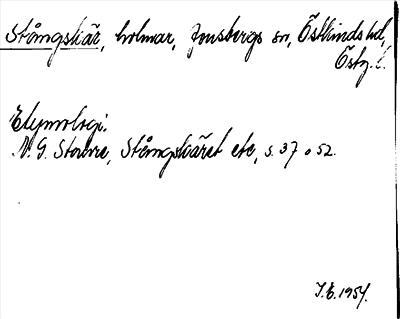 Stångskär, holmar, Jonsbergs sn, Östkinds hd,
Östg. l.
Etymologi.
N. G. Stahre, Stångskäret etc, s. 37 o 52.
1954.